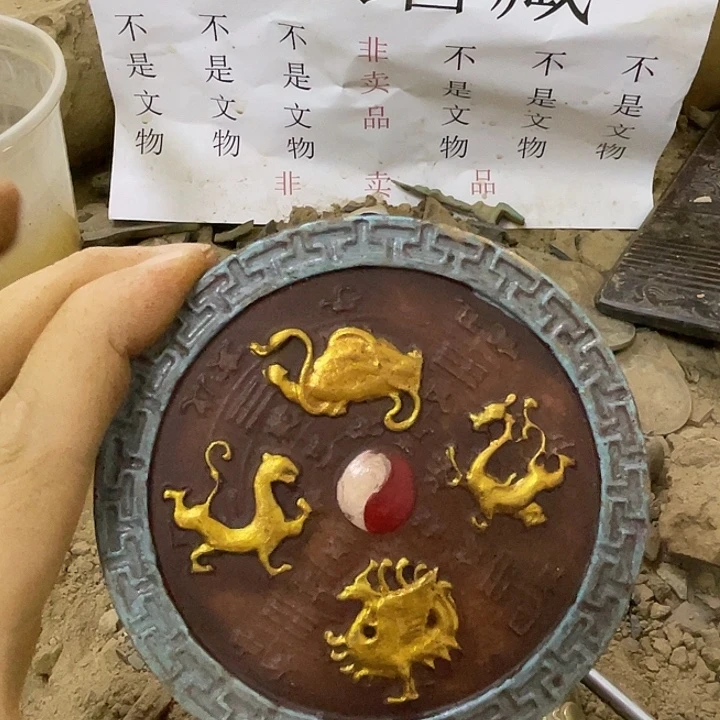 不是文物
不是文物
不是文物
非卖品
不是文物
不是文物
不是文物
非卖品